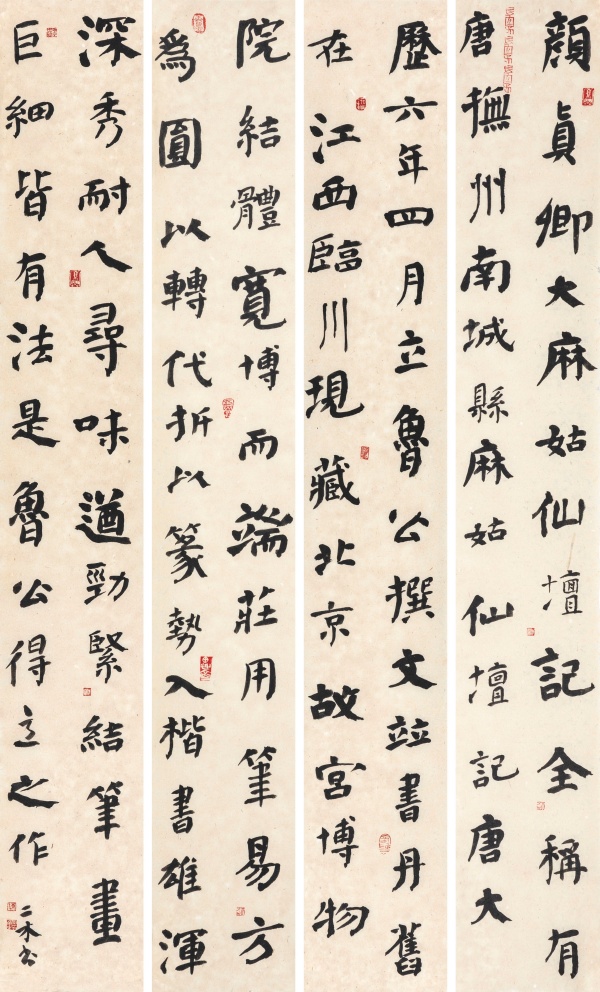 顏真卿大麻姑仙壇記全稱有
唐撫州南城縣麻姑仙壇記唐大
歷六年四月立魯公撰文竝書丹舊
在江西臨川現藏北京故宮博物
院結體寬博而端莊用筆易方
為圓以轉代折以篆勢入楷書雄渾
深秀耐人尋味遒勁緊結筆畫
巨細皆有法是魯公得意之作
二木書